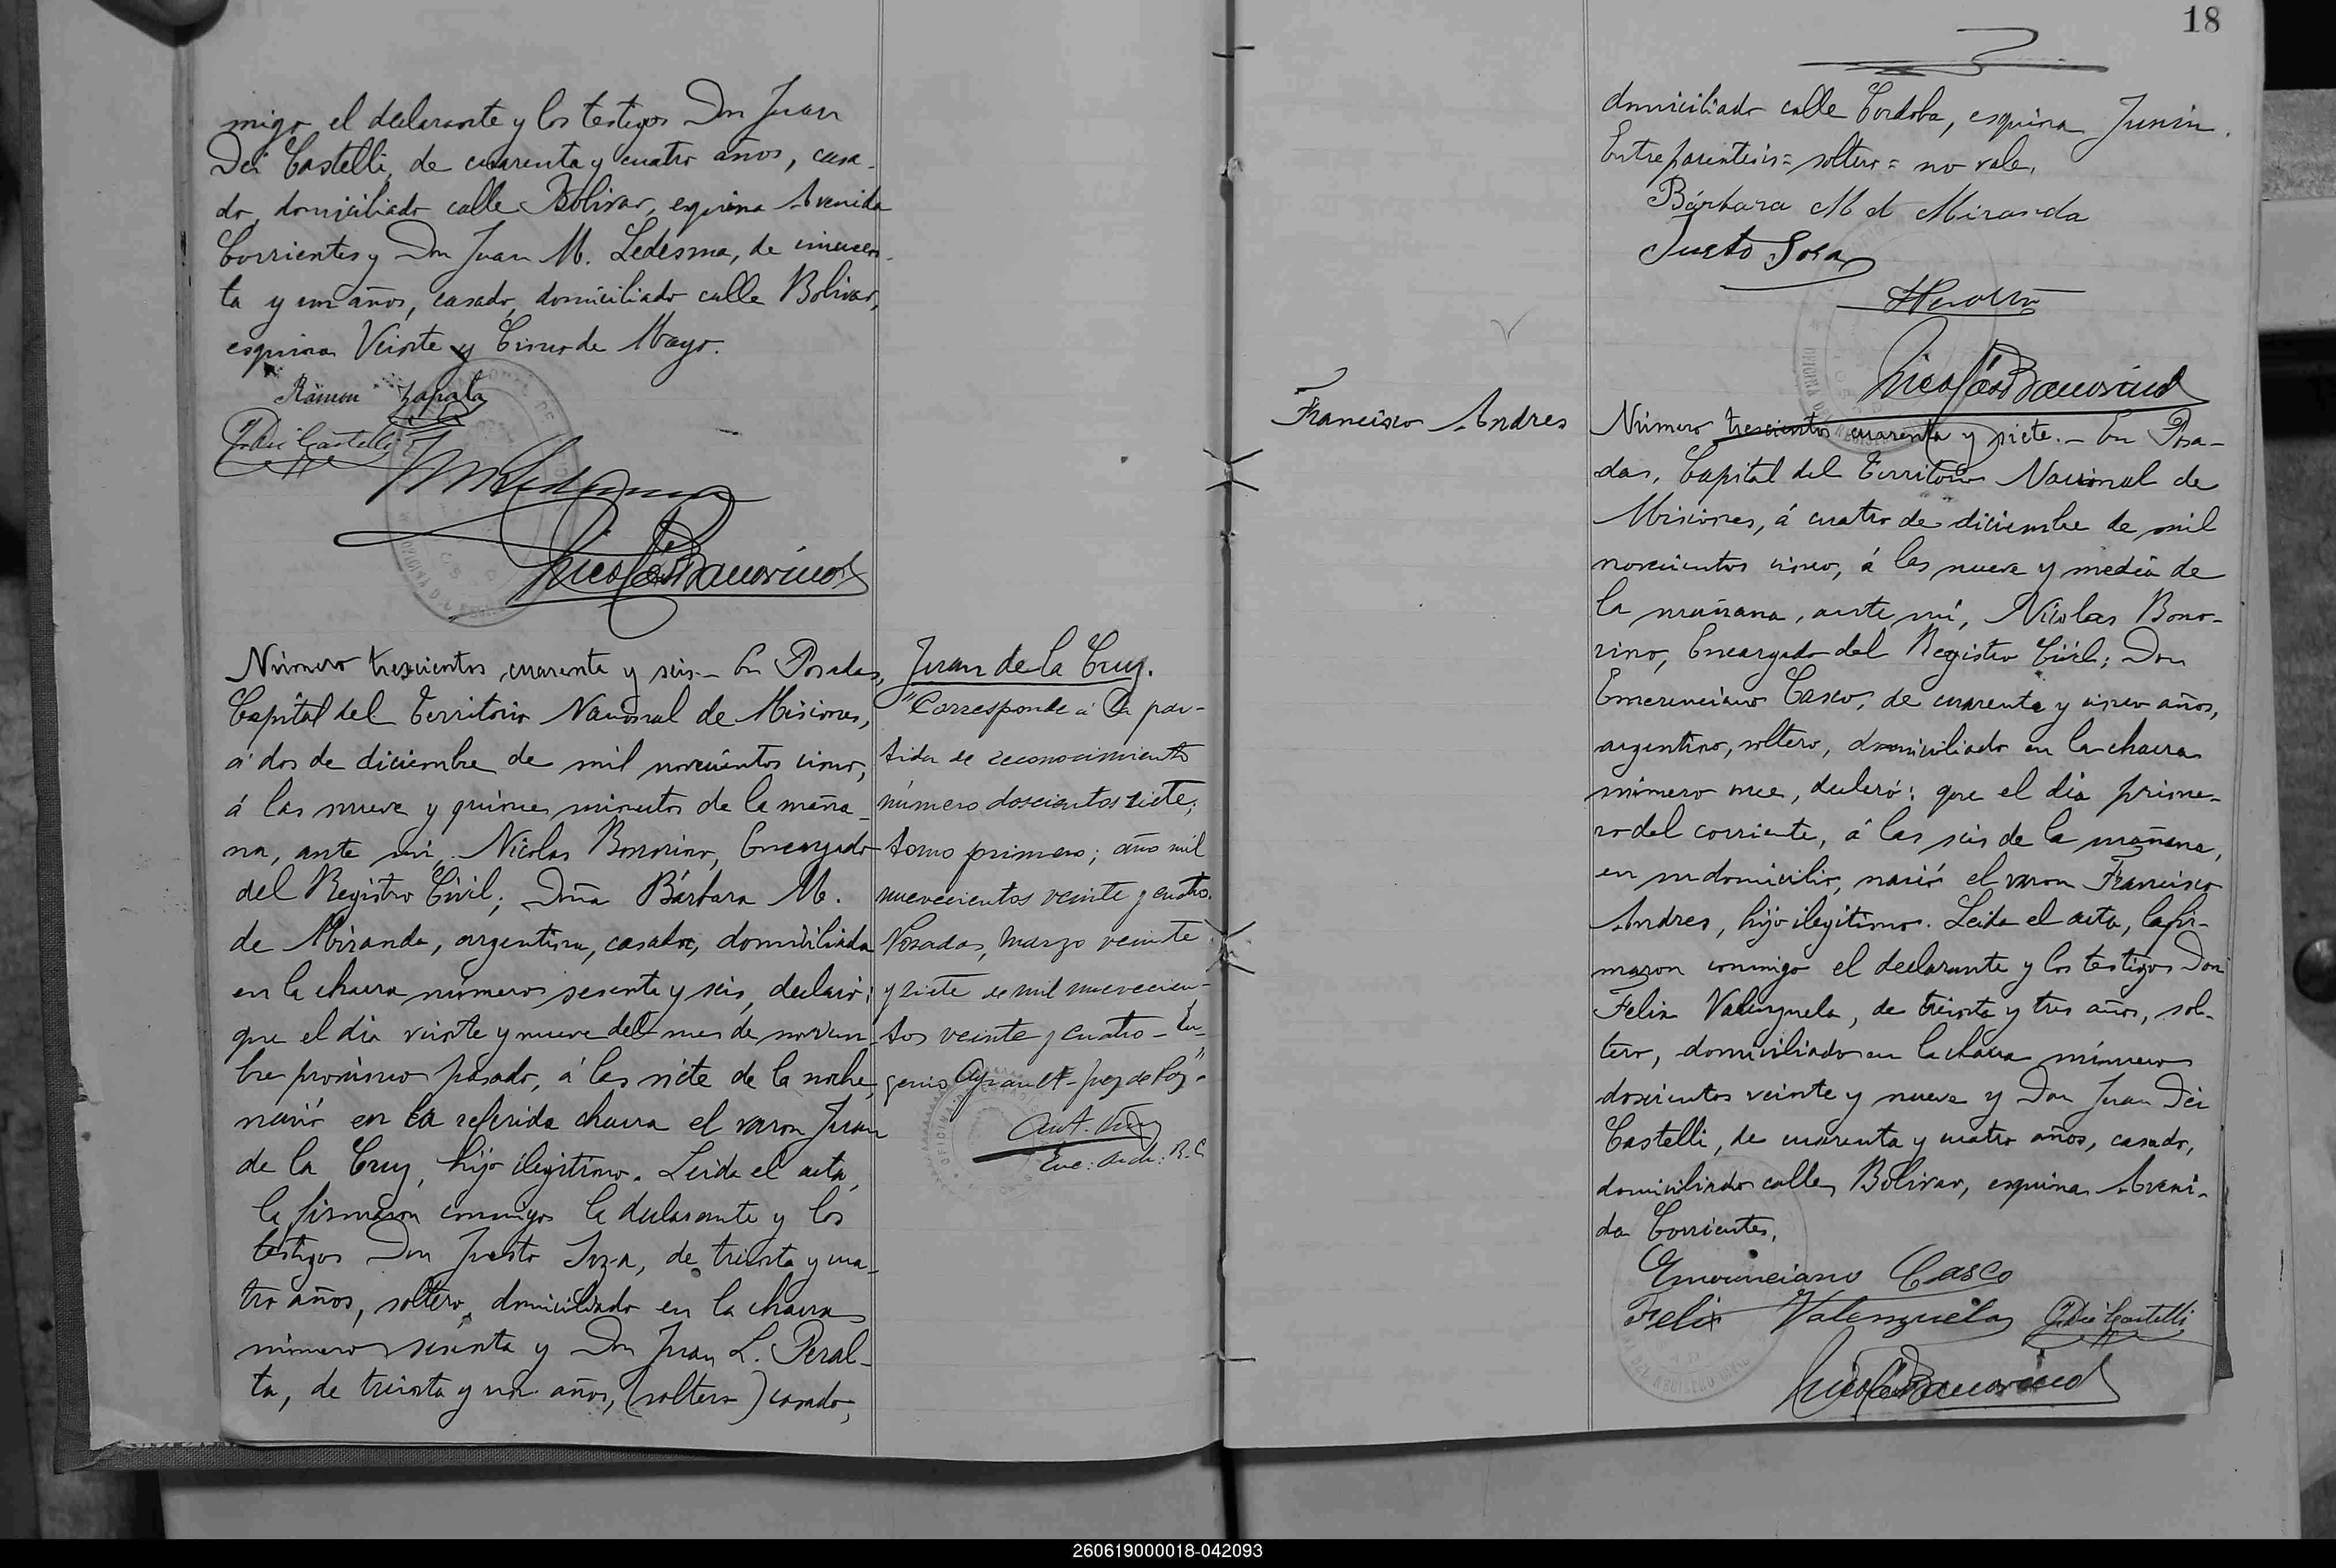 migo el declarante y los testigos Don Juan
Dei Castelli, de cuarenta y cuatro años, casa-
do, domiciliado calle Bolivar, esquina Avenida
Corrientes y Don Juan M. Ledesma, de cincuen-
ta y un años, casado, domiciliado calle Bolivar,
esquina Veinte y Cinco de Mayo.
Ramon Zapata
J. Dei Castelli
JM Ledesma
Nicolás Bonorino
Número trescientos cuarenta y seis.- En Posadas,
Capital del Territorio Nacional de Misiones,
á dos de diciembre de mil novecientos cinco,
á las nueve y quince minutos de la maña-
na, ante mí, Nicolas Bonorino, Encargado
del Registro Civil; Doña Bárbara M.
de Miranda, argentina, casada, domiciliada
en la chacra número sesenta y seis, declaró:
que el dia veinte y nueve del mes de noviem-
bre próximo pasado, á las siete de la noche,
nació en la referida chacra el varon Juan
de la Cruz, hijo ilegitimo. Leida el acta,
la firmaron conmigo la declarante y los
testigos Don Justo Soza, de treinta y cua-
tro años, soltero, domiciliado en la chacra
número sesenta y Don Juan L. Peral-
ta, de treinta y un años, (soltero) casado,
Juan de la Cruz.
"Corresponde á la par-
tida de reconocimiento
número doscientos siete;
tomo primero; año mil
nuevecientos veinte y cuatro.
Posadas, marzo veinte
y siete de mil nuevecien-
tos veinte y cuatro - Eu-
genio Ayrault - juez de Paz"
Enc: Arch: R.C
18
domiciliado calle Cordoba, esquina Junin.
Entre parentesis = soltero = no vale.
Bárbara M d Miranda
Justo Sosa
Nicolás Bonorino
Francisco Andres
Número trescientos cuarenta y siete.- En Posa-
das, Capital del Territorio Nacional de
Misiones, á cuatro de diciembre de mil
novecientos cinco, á las nueve y media de
la mañana, ante mí, Nicolas Bono-
rino, Encargado del Registro Civil; Don
Emerenciano Casco, de cuarenta y cinco años,
argentino, soltero, domiciliado en la chacra
número once, declaró: que el dia prime-
ro del corriente, á las seis de la mañana,
en su domicilio, nació el varon Francisco
Andres, hijo ilegitimo. Leida el acta, la fir-
maron conmigo el declarante y los testigos Don
Felix Valenzuela, de treinta y tres años, sol-
tero, domiciliado en la chacra número
doscientos veinte y nueve y Don Juan Dei
Castelli, de cuarenta y cuatro años, casado,
domiciliado calle Bolivar, esquina Aveni-
da Corrientes.
Emerenciano Casco
Felix Valenzuela J. Dei Castelli
Nicolás Bonorino
260619000018-042093